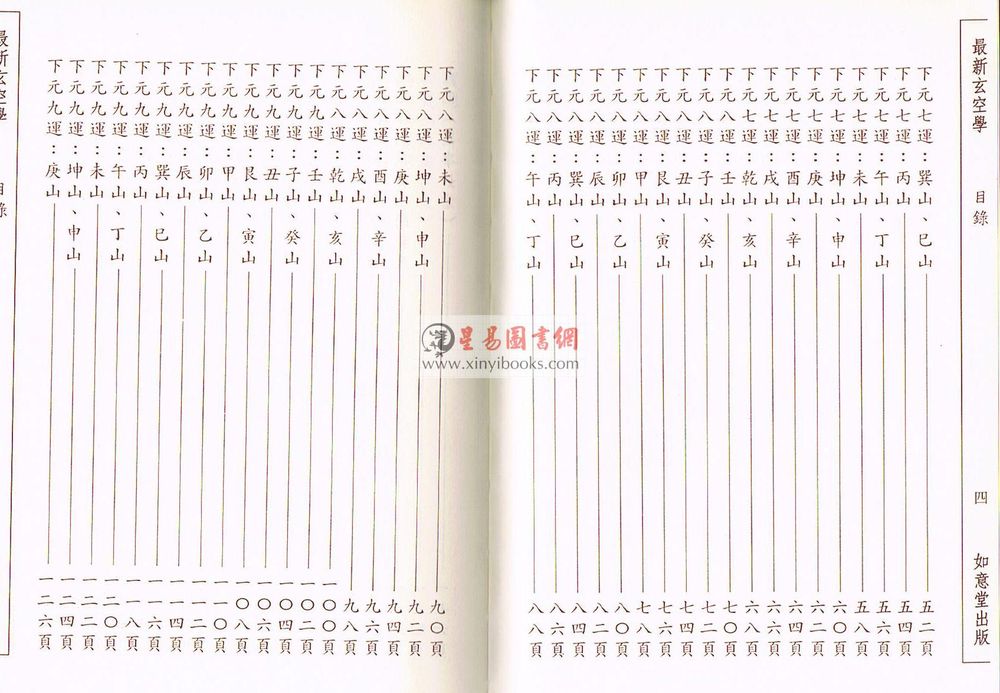 最新玄空學 目錄 四 如意堂出版
下元七運：巽山、巳山 五二頁
下元七運：丙山 五四頁
下元七運：午山、丁山 五六頁
下元七運：未山 五八頁
下元七運：坤山、申山 六〇頁
下元七運：庚山 六二頁
下元七運：酉山、辛山 六四頁
下元七運：戌山 六六頁
下元七運：乾山、亥山 六八頁
下元八運：壬山 七〇頁
下元八運：子山、癸山 七二頁
下元八運：丑山 七四頁
下元八運：艮山、寅山 七六頁
下元八運：甲山 七八頁
下元八運：卯山、乙山 八〇頁
下元八運：辰山 八二頁
下元八運：巽山、巳山 八四頁
下元八運：丙山 八六頁
下元八運：午山、丁山 八八頁
下元八運：未山 九〇頁
下元八運：坤山、申山 九二頁
下元八運：庚山 九四頁
下元八運：酉山、辛山 九六頁
下元八運：戌山 九八頁
下元八運：乾山、亥山 一〇〇頁
下元九運：壬山 一〇二頁
下元九運：子山、癸山 一〇四頁
下元九運：丑山 一〇六頁
下元九運：艮山、寅山 一〇八頁
下元九運：甲山 一一〇頁
下元九運：卯山、乙山 一一二頁
下元九運：辰山 一一四頁
下元九運：巽山、巳山 一一六頁
下元九運：丙山 一一八頁
下元九運：午山、丁山 一二〇頁
下元九運：未山 一二二頁
下元九運：坤山、申山 一二四頁
下元九運：庚山 一二六頁
最新玄空學 目錄
星易圖書網
www.xinyibooks.com